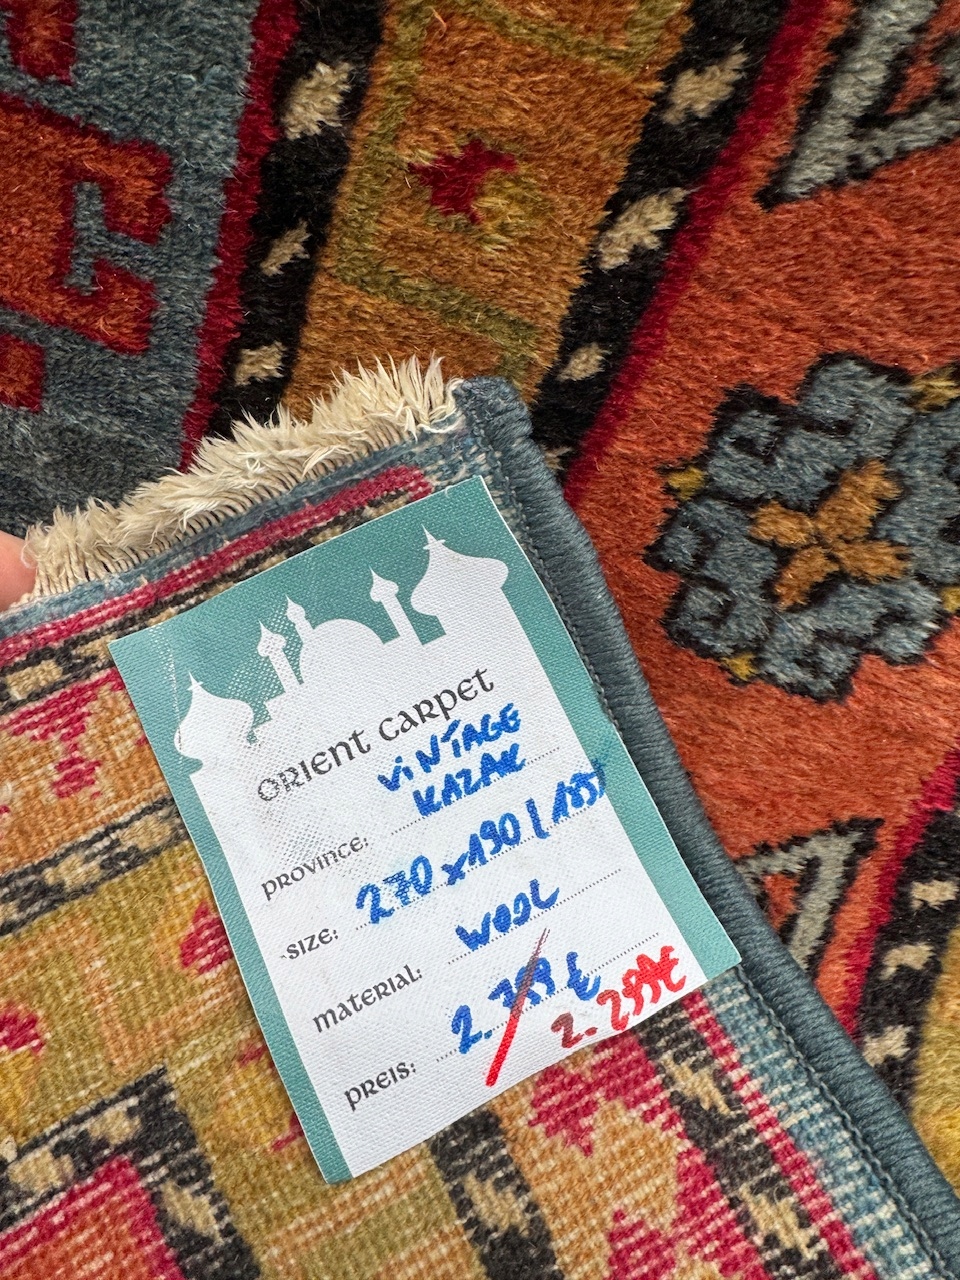 ORIENT CARPET
VINTAGE
KAZAK
PROVINCE:
SIZE: 270 x 190 | 185
MATERIAL: WOOL
PREIS: 2. €
2. 299€